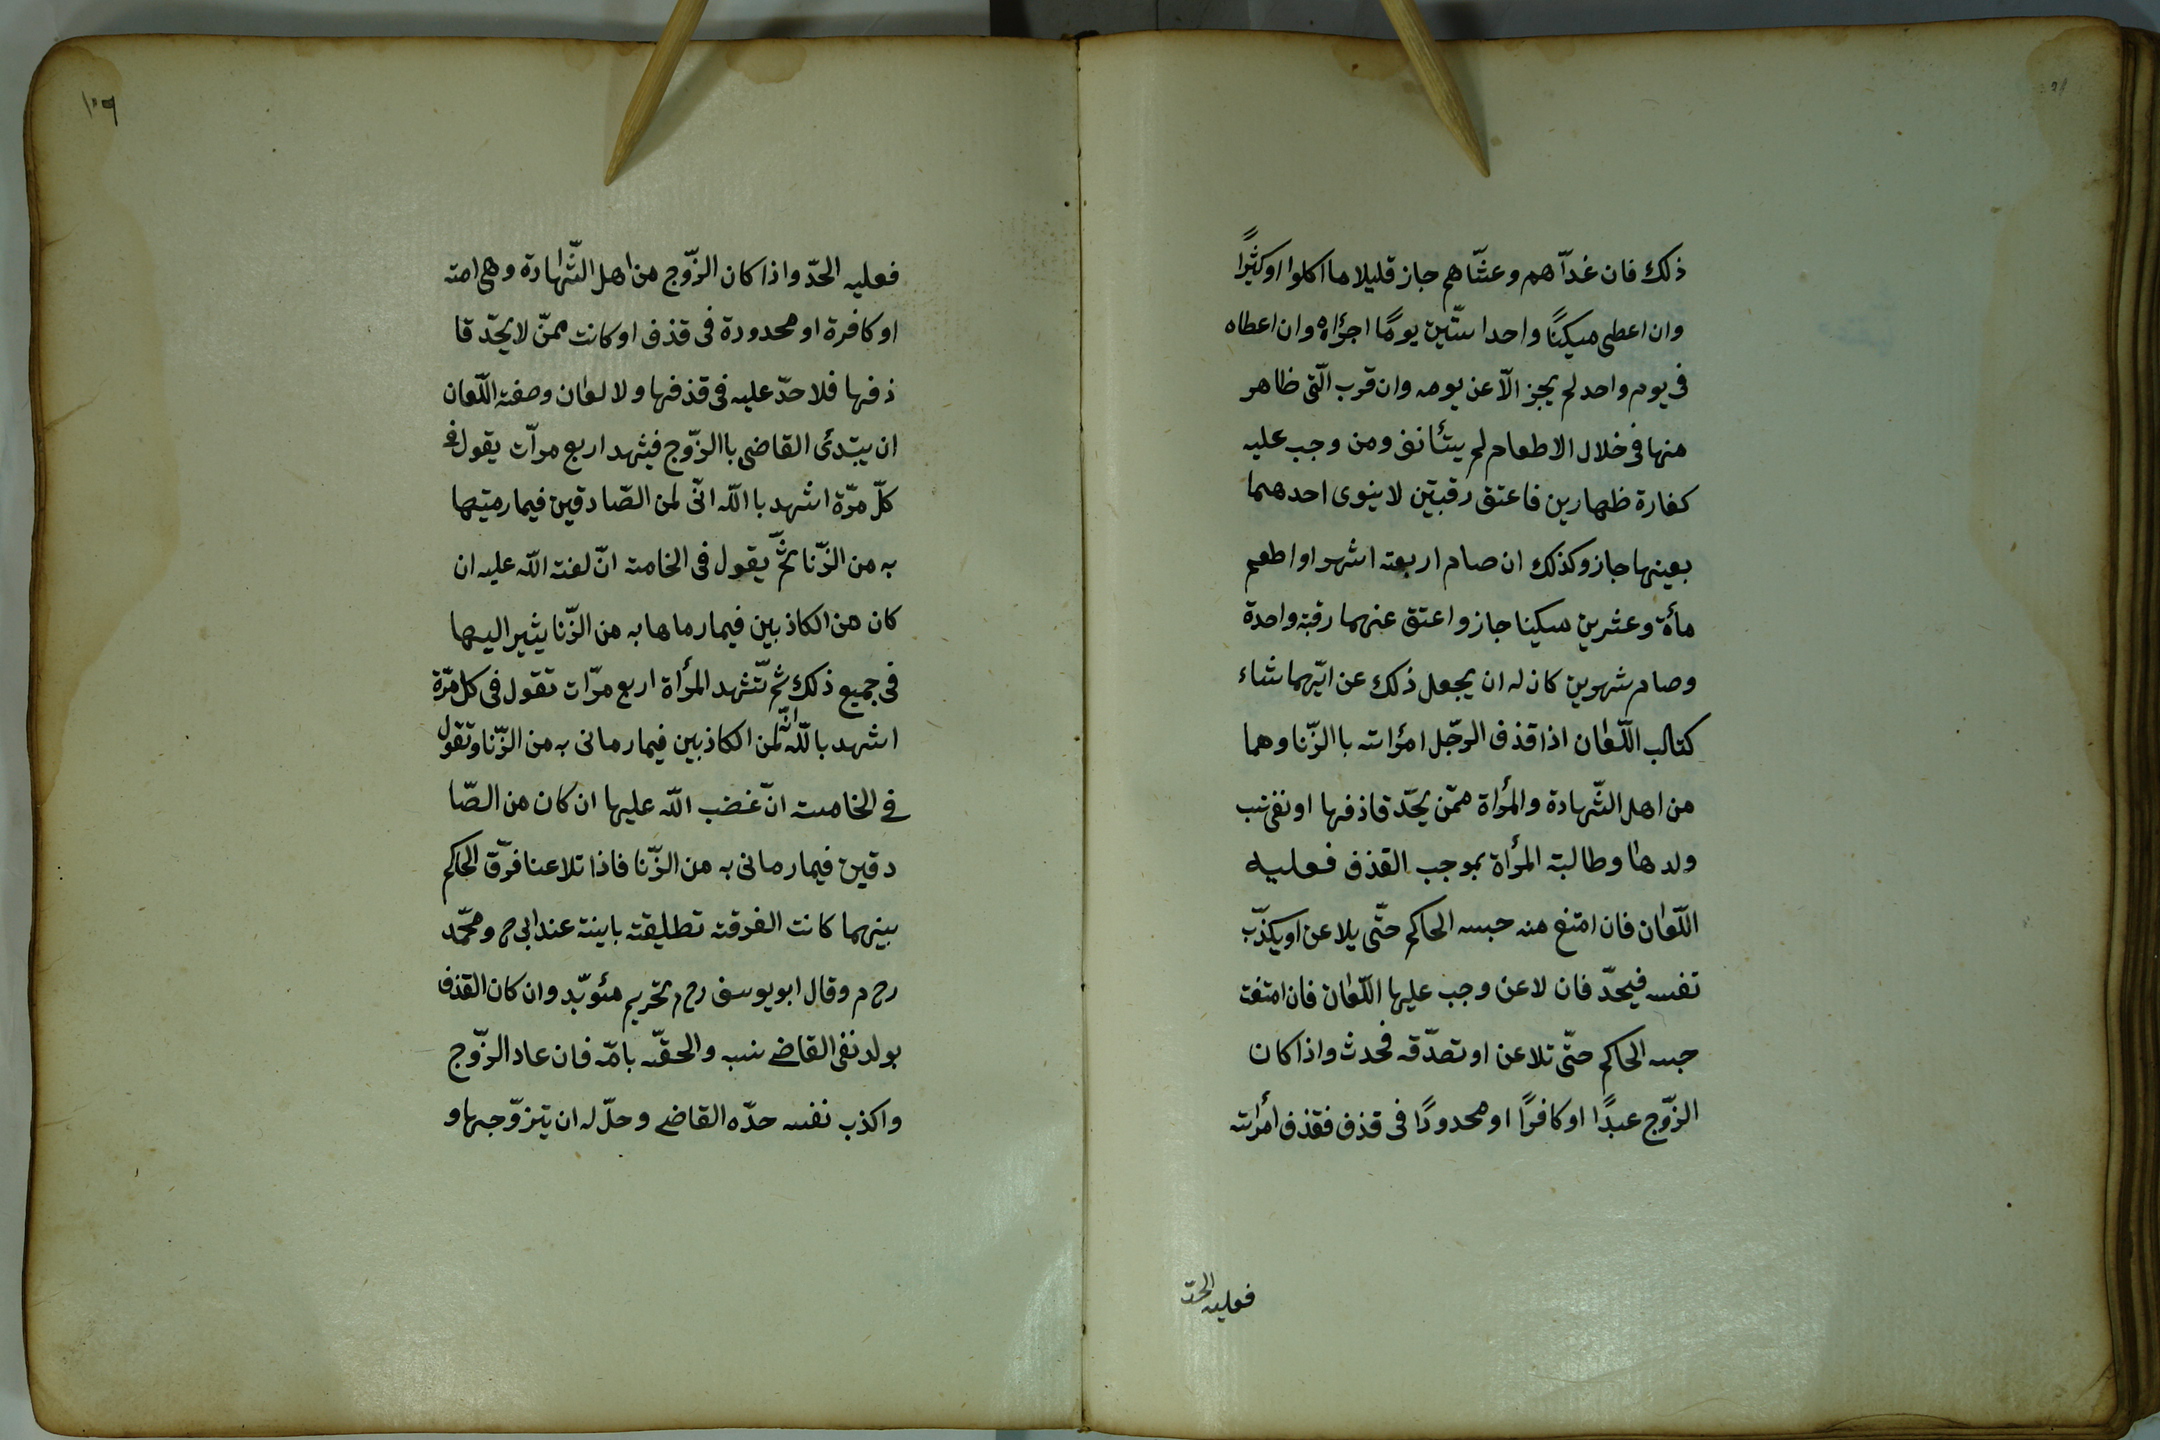 ذلك فان غدآهم وعشّاهم جاز قليلا ما اكلوا او كثيرًا
وان اعطى مسكينًا واحدا ستّين يومًا اجزاه وان اعطاه
فى يوم واحد لم يجز الّا عن يومه وان قرب الّتى ظاهر
منها فى خلال الاطعام لم يستأنف ومن وجب عليه
كفارة ظهارين فاعتق رقبتين لا ينوى احدهما
بعينها جاز وكذلك ان صام اربعة اشهر او اطعم
مأة وعشرين مسكينا جاز واعتق عنهما رقبة واحدة
وصام شهرين كان له ان يجعل ذلك عن ايّهما شاء
كتاب اللّعان اذا قذف الرجّل امرأته باالزّنا وهما
من اهل الشّهادة والمرأة ممّن يحّد قاذفها او نفى نسب
ولدها وطالبته المرأة بموجب القذف فعليه
اللّعان فان امتنع منه حبسه الحاكم حتّى يلاعن او يكذّب
نفسه فيحدّ فان لاعن وجب عليها اللّعان فان امتنعت
حبسه الحاكم حتّى تلاعن او تصدّقه فحدث واذا كان
الزّوج عبدًا او كافرًا او محدودًا فى قذف فقذف امرأته
فعليه الحدّ
١٠٩
فعليه الحدّ واذا كان الزّوج من اهل الشّهادة وهى امته
او كافرة او محدودة فى قذف او كانت ممنّ لا يحّد قا
ذفها فلا حدّ عليه فى قذفها ولا لعان وصفته اللّعان
ان يبتدئ القاضى باالزّوج فيشهد اربع مرآت يقول فى
كلّ مرّة اشهد باالله انّى لمن الصّادقين فيما رميتها
به من الزّنا ثمّ يقول فى الخامسة انّ لعنة الله عليه ان
كان من الكاذبين فيما رماها به من الزّنا يشير اليها
فى جميع ذلك ثم تّشهد المرأة اربع مرّات تقول فى كل مرّة
اشهد بالله انّه لمن الكاذبين فيما رمانى به من الزّنا وتقول
فى الخامسة انّ غضب الله عليها ان كان من الصّا
دقين فيما رمانى به من الزّنا فاذا تلاعنا فرّق الحاكم
بينهما كانت الفرقته تطليقته باينة عند ابى ح ومحمّد
رح م وقال ابو يوسف رح م تحريم مئوبّد وان كان القذف
بولد نفى القاضى نسبه والحقّه بامّه فان عاد الزّوج
واكذب نفسه حدّه القاضى وحلّ له ان يتزوّجها و